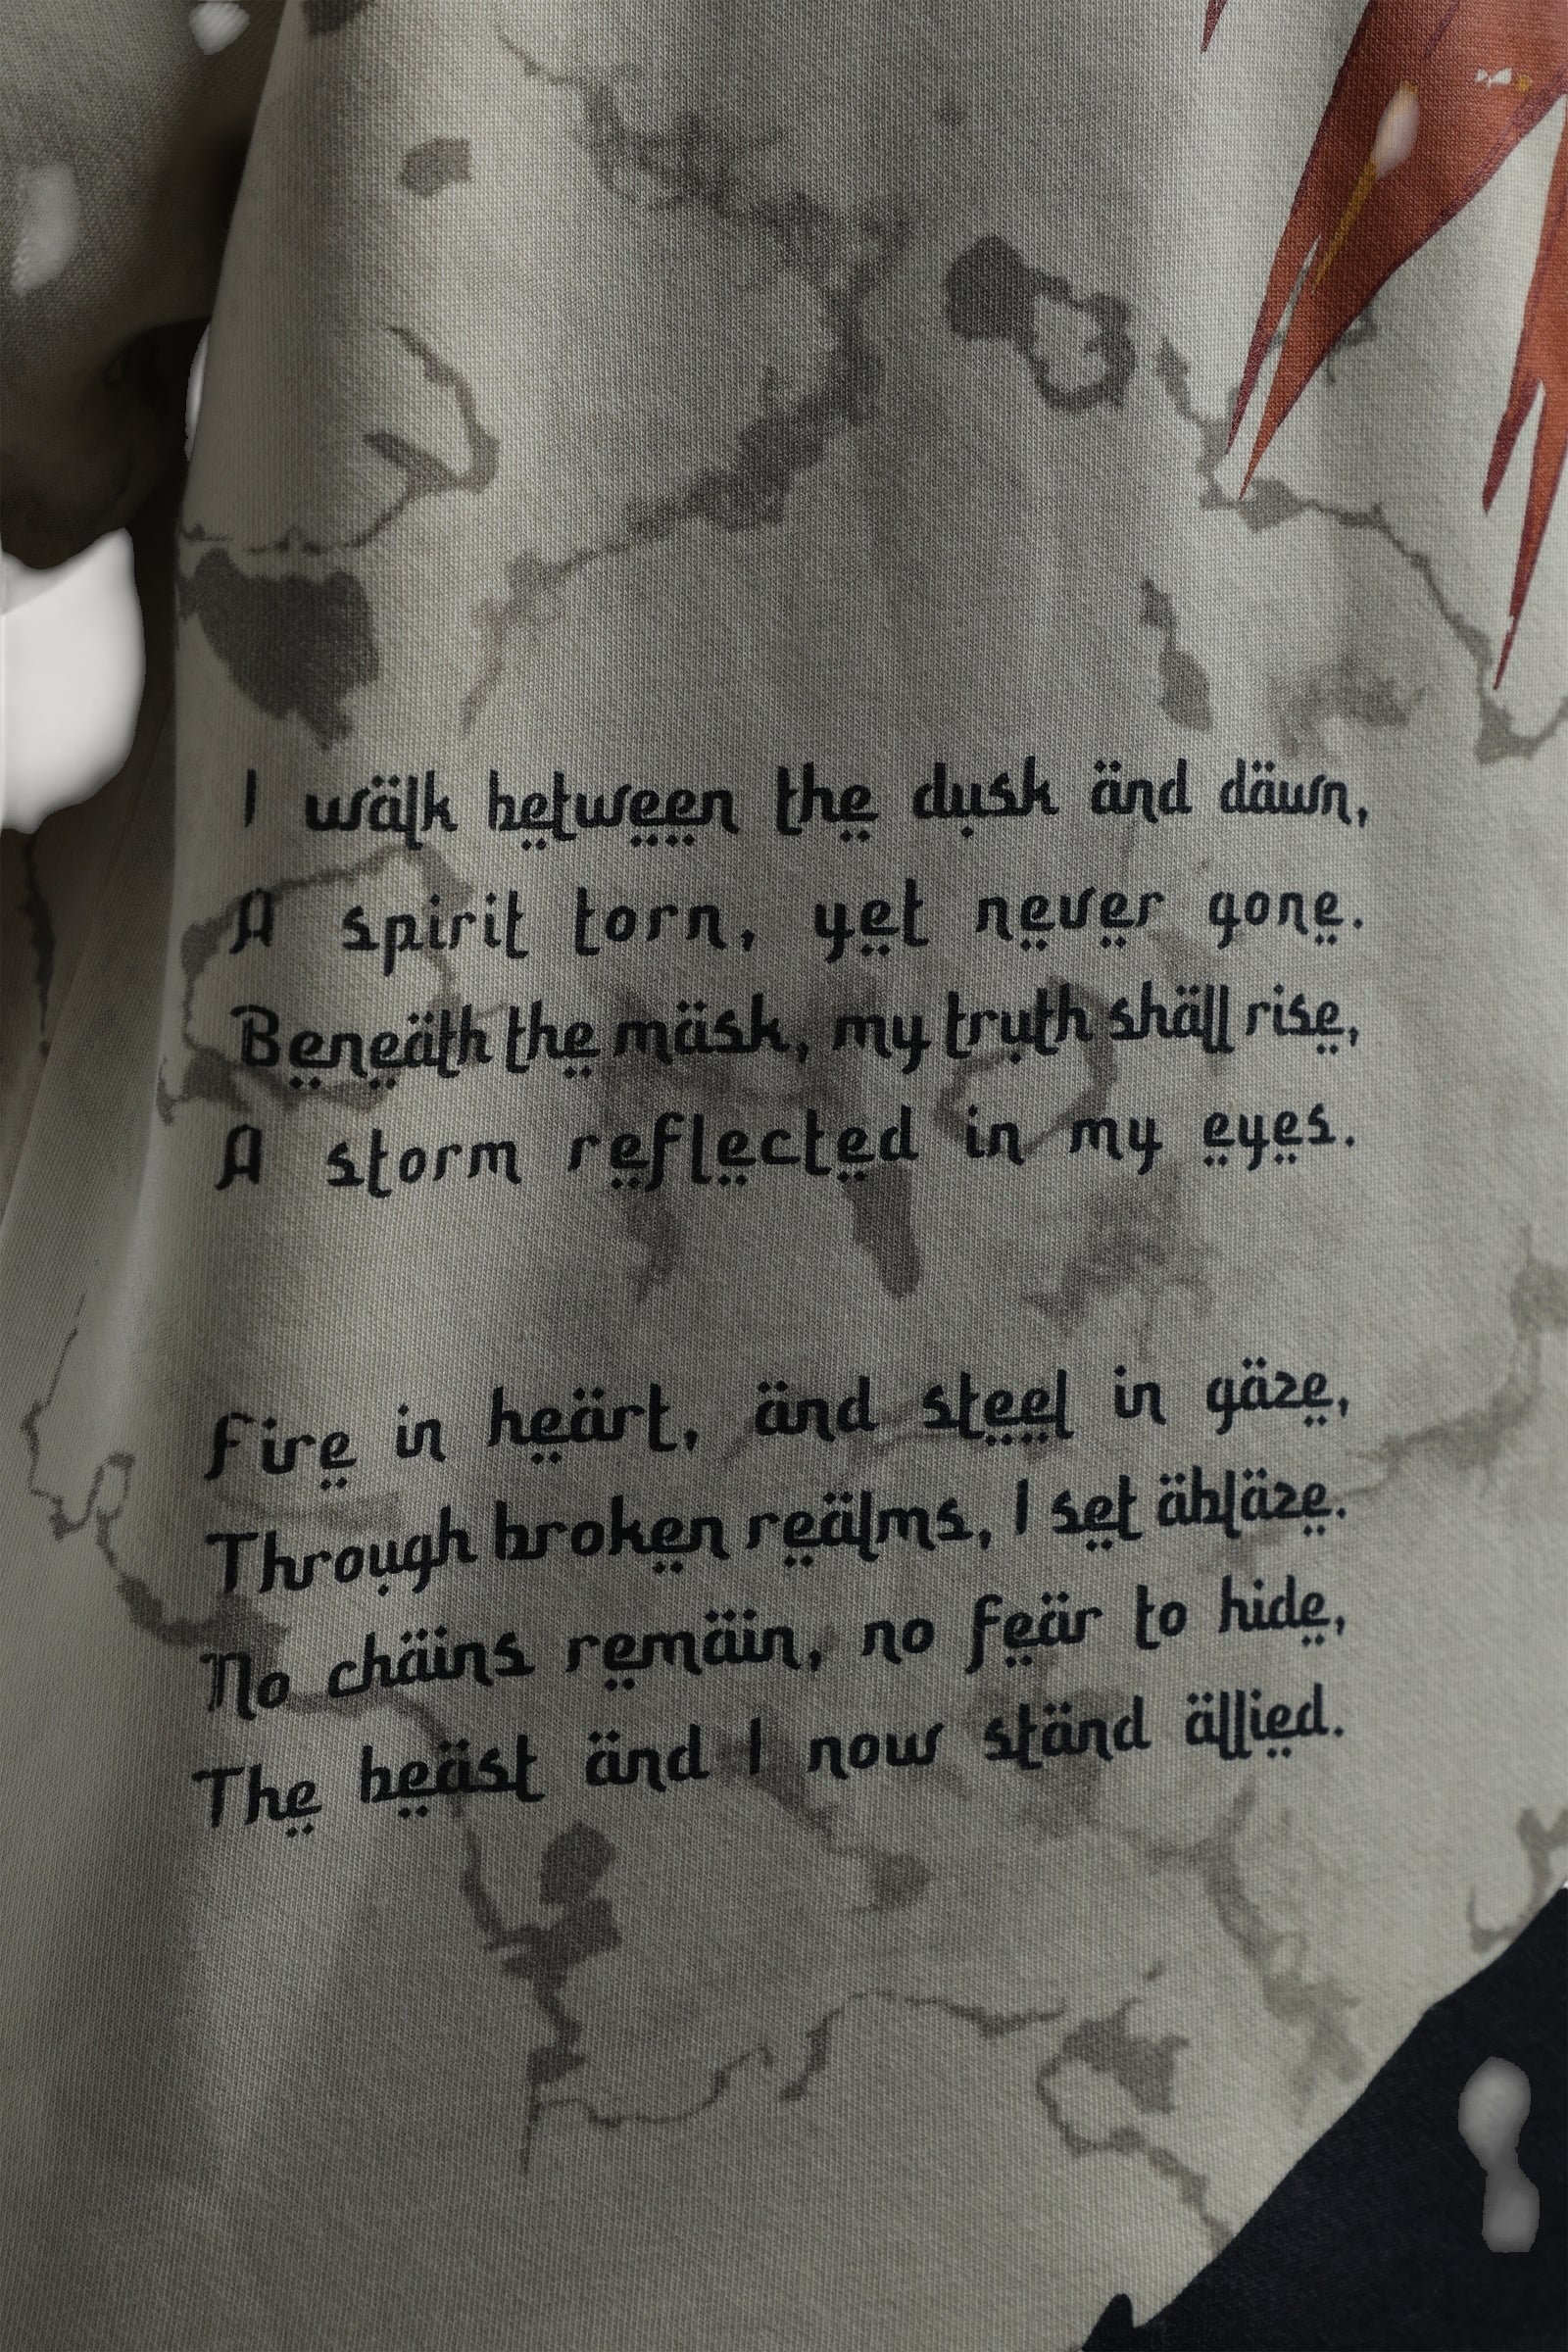 I walk between the dusk and dawn,
A spirit torn, yet never gone.
Beneath the mask, my truth shall rise,
A storm reflected in my eyes.
Fire in heart, and steel in gaze,
Through broken realms, I set ablaze.
No chains remain, no fear to hide,
The beast and I now stand allied.